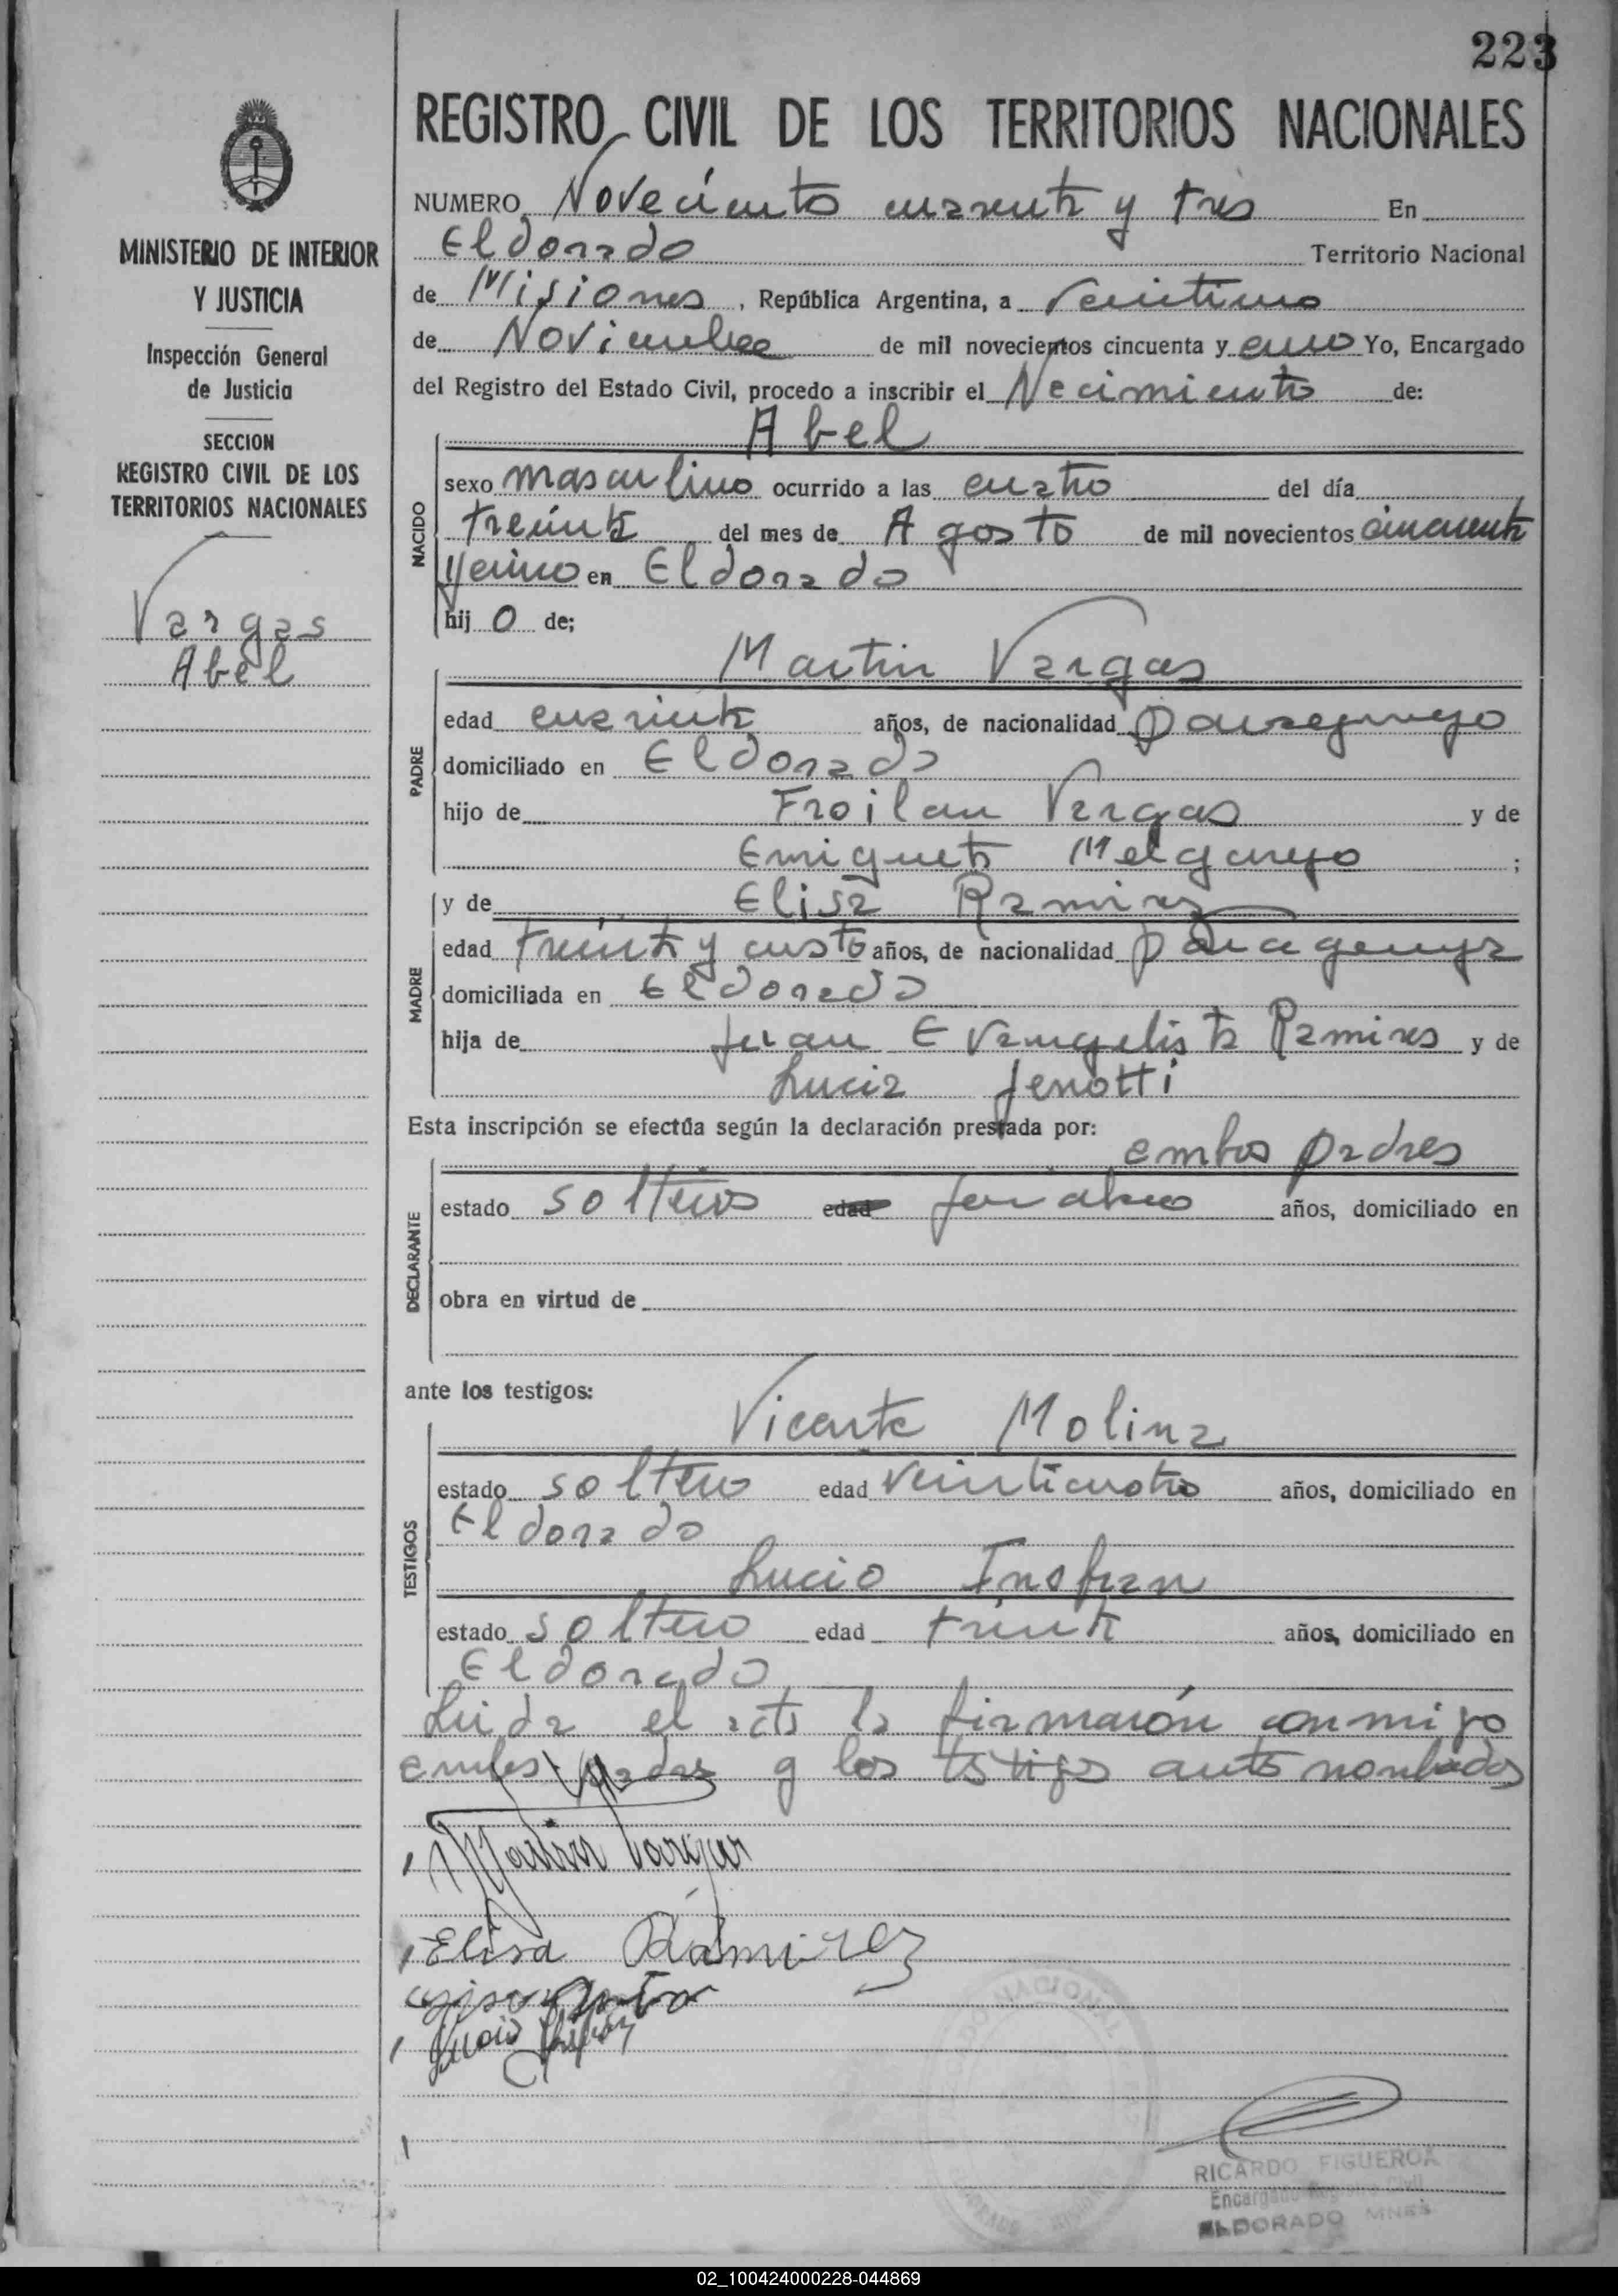 223
REGISTRO CIVIL DE LOS TERRITORIOS NACIONALES
NUMERO Noveciento cuarenta y tres En
Eldorado Territorio Nacional
de Misiones, República Argentina, a Veintiuno
de Noviembre de mil novecientos cincuenta y uno Yo, Encargado
del Registro del Estado Civil, procedo a inscribir el Nacimiento de:
MINISTERIO DE INTERIOR
Y JUSTICIA
Inspección General
de Justicia
SECCION
REGISTRO CIVIL DE LOS
TERRITORIOS NACIONALES
Vargas
Abel
NACIDO
Abel
sexo masculino ocurrido a las cuatro del día
treinta del mes de Agosto de mil novecientos cincuenta
y uno en Eldorado
hij o de;
PADRE
Martin Vargas
edad cuarenta años, de nacionalidad paraguayo
domiciliado en Eldorado
hijo de Froilan Vargas y de
Enriqueta Melgarejo ;
y de Elisa Ramirez
MADRE
edad treinta y cuatro años, de nacionalidad paraguaya
domiciliada en Eldorado
hija de Juan Evangelista Ramires y de
Lucia
Esta inscripción se efectúa según la declaración prestada por:
DECLARANTE
ambos padres
estado solteros edad años, domiciliado en
obra en virtud de
ante los testigos:
TESTIGOS
Vicente Molina
estado soltero edad veinticuatro años, domiciliado en
Eldorado
Lucio Insfran
estado soltero edad treinta años, domiciliado en
Eldorado
Leida el acta la firmarón conmigo
ambos padres y los testigos ante nombrados
Martin Vargas
Elisa Ramirez
Lucio Insfrán
RICARDO FIGUEROA
Encargado Registro Civil
ELDORADO MNES
02_100424000228-044869